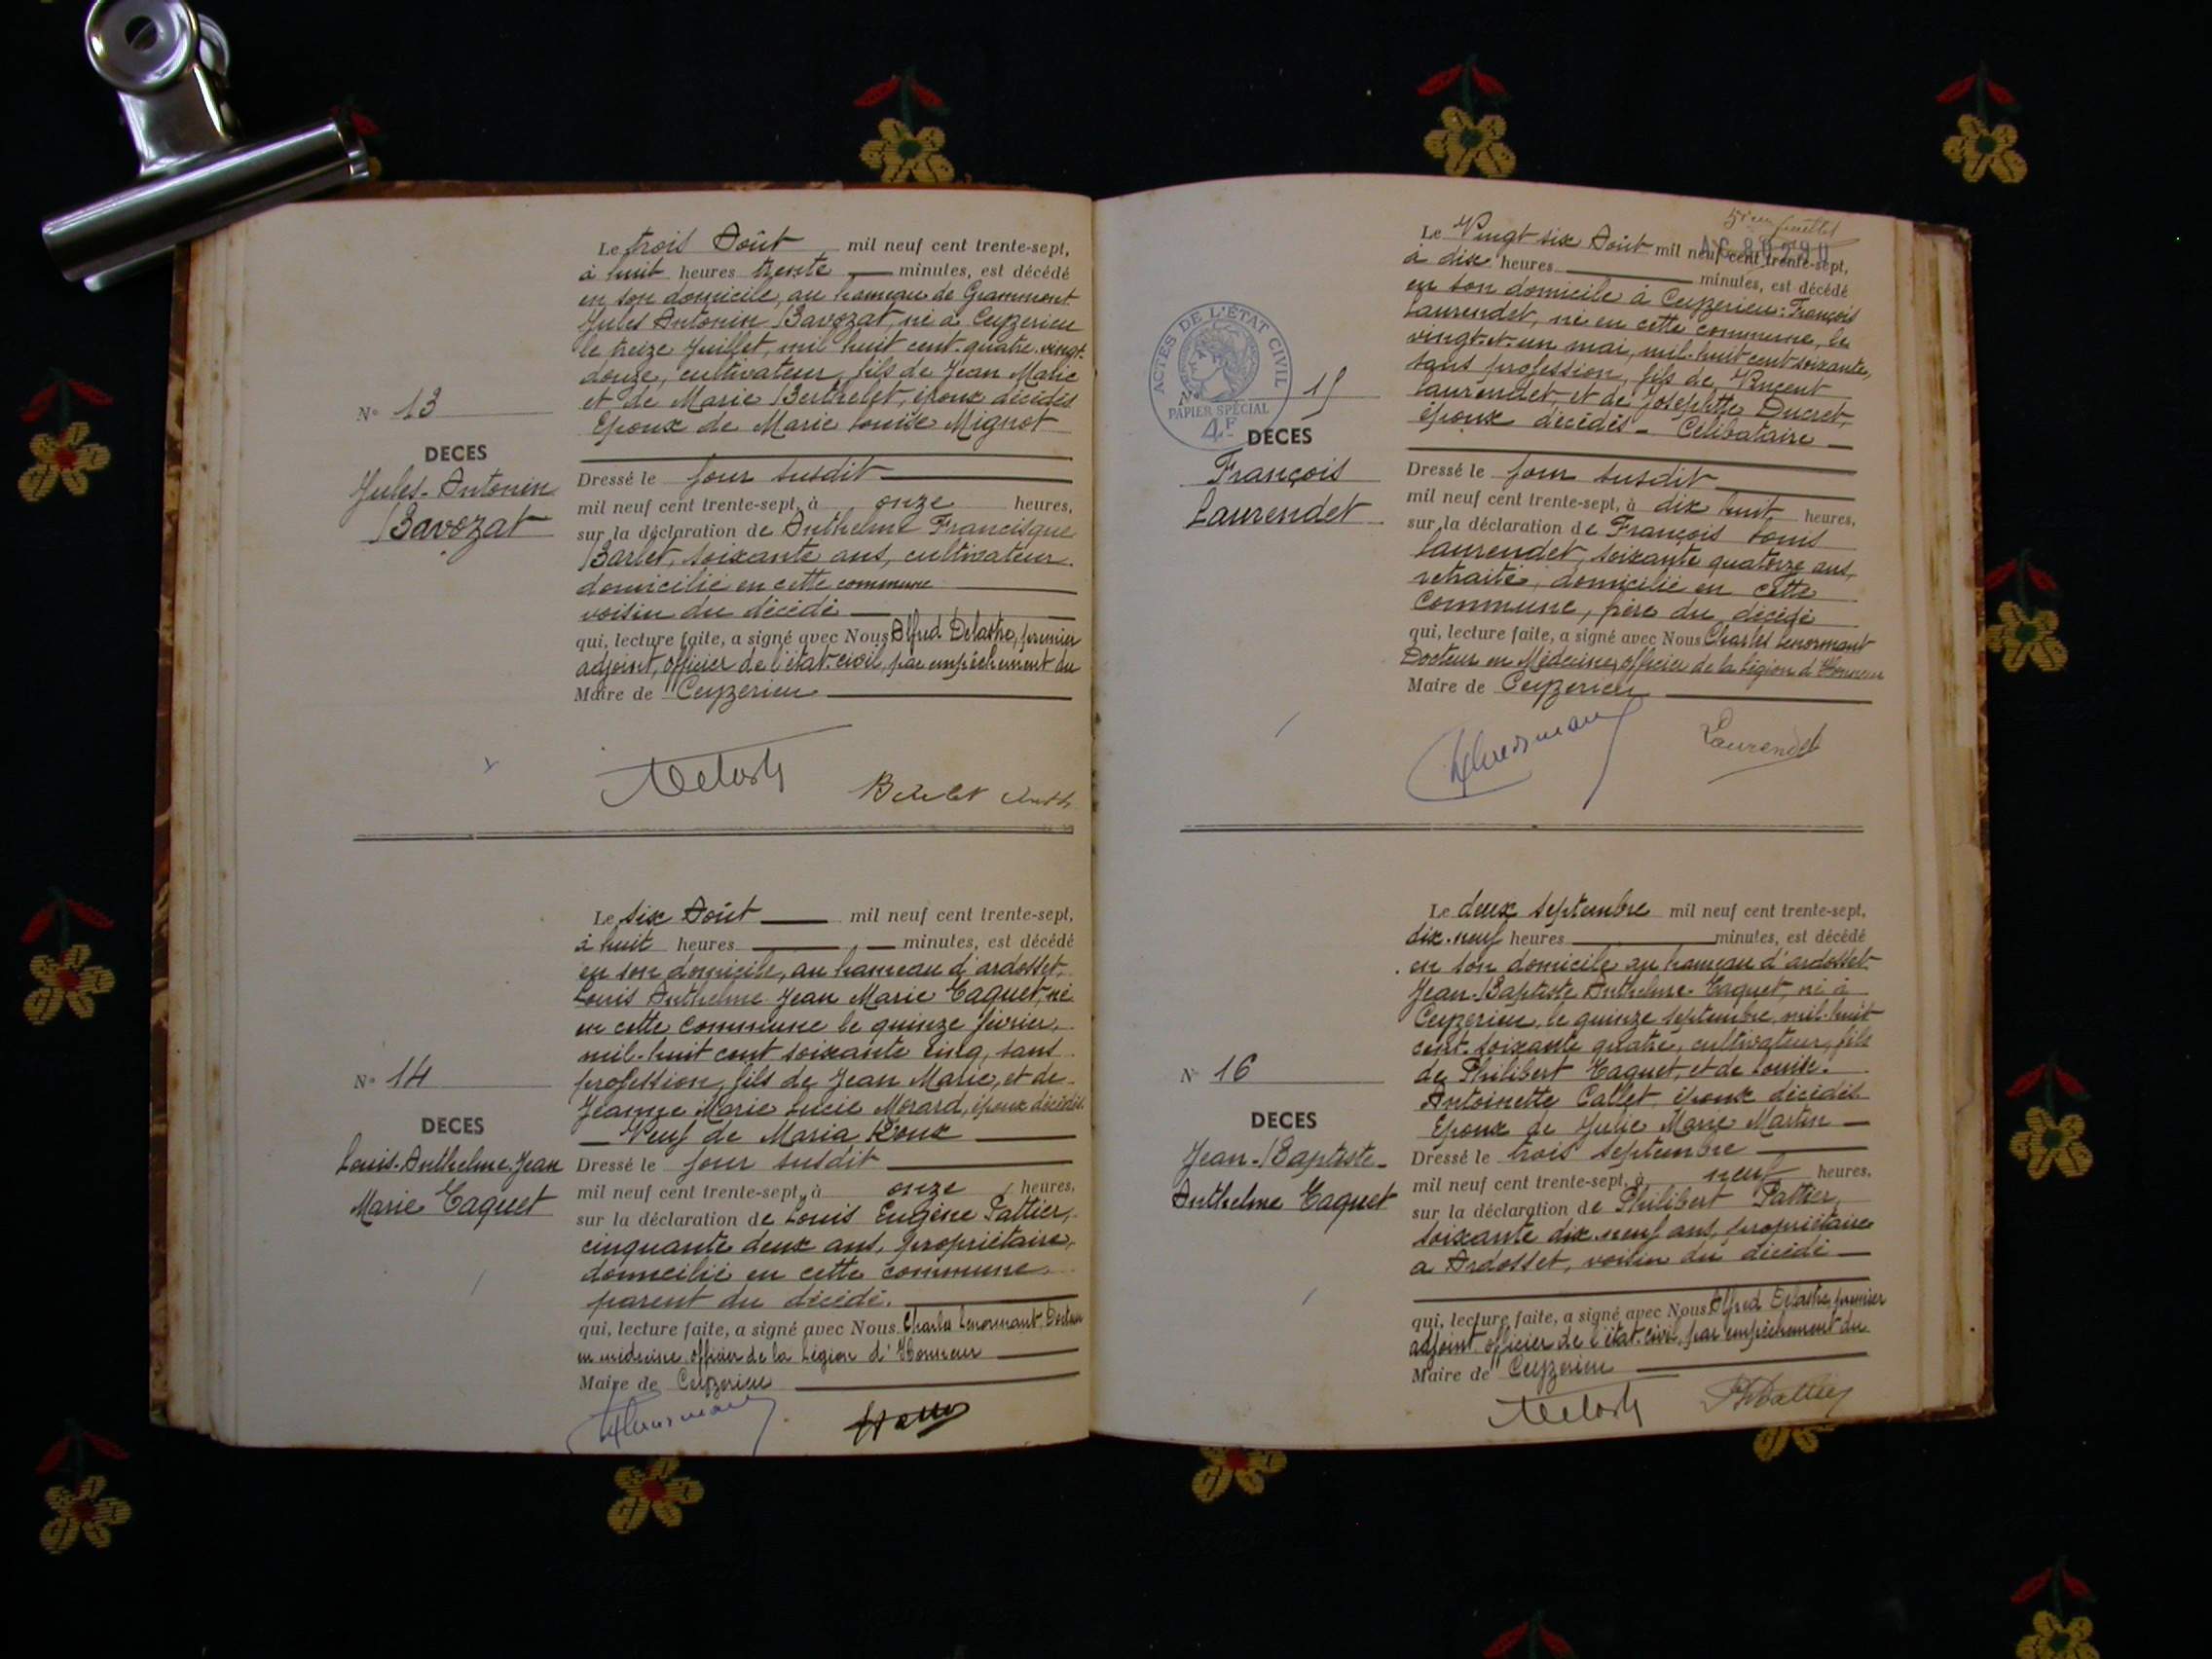 Le trois Août mil neuf cent trente-sept,
à huit heures trente minutes, est décédé
en son domicile, au hameau de Grammont
Jules Antonin Bavozat, né à Ceyzerieu
le treize Juillet, mil huit cent quatre vingt
douze, cultivateur, fils de Jean Marie
et de Marie Berthelet, époux décédés
Epoux de Marie Louise Mignot
N° 13
DECES
Jules-Antonin
Bavozat
Dressé le jour susdit
mil neuf cent trente-sept, à onze heures,
sur la déclaration de Anthelme Francisque
Barlet, soixante ans, cultivateur
domicilié en cette commune
voisin du décédé
qui, lecture faite, a signé avec Nous Alfred Delastre, premier
adjoint, officier de l'état-civil, par empêchement du
Maire de Ceyzerieu
Le six Août mil neuf cent trente-sept,
à huit heures minutes, est décédé
en son domicile, au hameau d'ardosset,
Louis Anthelme Jean Marie Taquet, né
en cette commune le quinze février,
mil-huit cent soixante cinq, sans
profession, fils de Jean Marie, et de
Jeanne Marie Lucie Morard, époux décédés.
Veuf de Maria Roux
N° 14
DECES
Louis-Anthelme-Jean
Marie Taquet
Dressé le jour susdit
mil neuf cent trente-sept, à onze heures,
sur la déclaration de Louis Eugène Pattier,
cinquante deux ans, propriétaire,
domicilié en cette commune
parent du décédé.
qui, lecture faite, a signé avec Nous Charles Lenormant, Docteur
en médecine officier de la Légion d'Honneur
Maire de Ceyzerieu
5ième feuillet
Le Vingt six Août mil neuf cent trente-sept,
à dix heures minutes, est décédé
en son domicile à Ceyzerieu: François
Laurendet, né en cette commune, le
vingt-et-un mai, mil-huit cent soixante,
sans profession, fils de Vincent
Laurendet, et de Josephtte Ducret,
époux décédés - Célibataire
ACTES DE L'ÉTAT CIVIL
PAPIER SPÉCIAL
4F
N° 15
DECES
François
Laurendet
Dressé le jour susdit
mil neuf cent trente-sept, à dix huit heures,
sur la déclaration de François Louis
Laurendet, soixante quatorze ans,
retraité, domicilié en cette
commune, père du décédé
qui, lecture faite, a signé avec Nous Charles Lenormant
Docteur en Médecine, officier de la Légion d'Honneur
Maire de Ceyzerieu
Laurendet
Le deux septembre mil neuf cent trente-sept,
dix-neuf heures minutes, est décédé
en son domicile au hameau d'ardosset
Jean-Baptiste Anthelme Taquet, né à
Ceyzerieu, le quinze septembre, mil-huit
cent-soixante quatre, cultivateur, fils
de Philibert Taquet, et de Louise.
Antoinette Callet, époux décédés.
Epoux de Julie Marie Martin
N° 16
DECES
Jean-Baptiste-
Anthelme Taquet
Dressé le trois septembre
mil neuf cent trente-sept, à neuf heures,
sur la déclaration de Philibert Pattier,
soixante dix-neuf ans, propriétaire
a Ardosset, voisin du décédé
qui, lecture faite, a signé avec Nous Alfred Delastre, premier
adjoint officier de l'état-civil, par empêchement du
Maire de Ceyzerieu